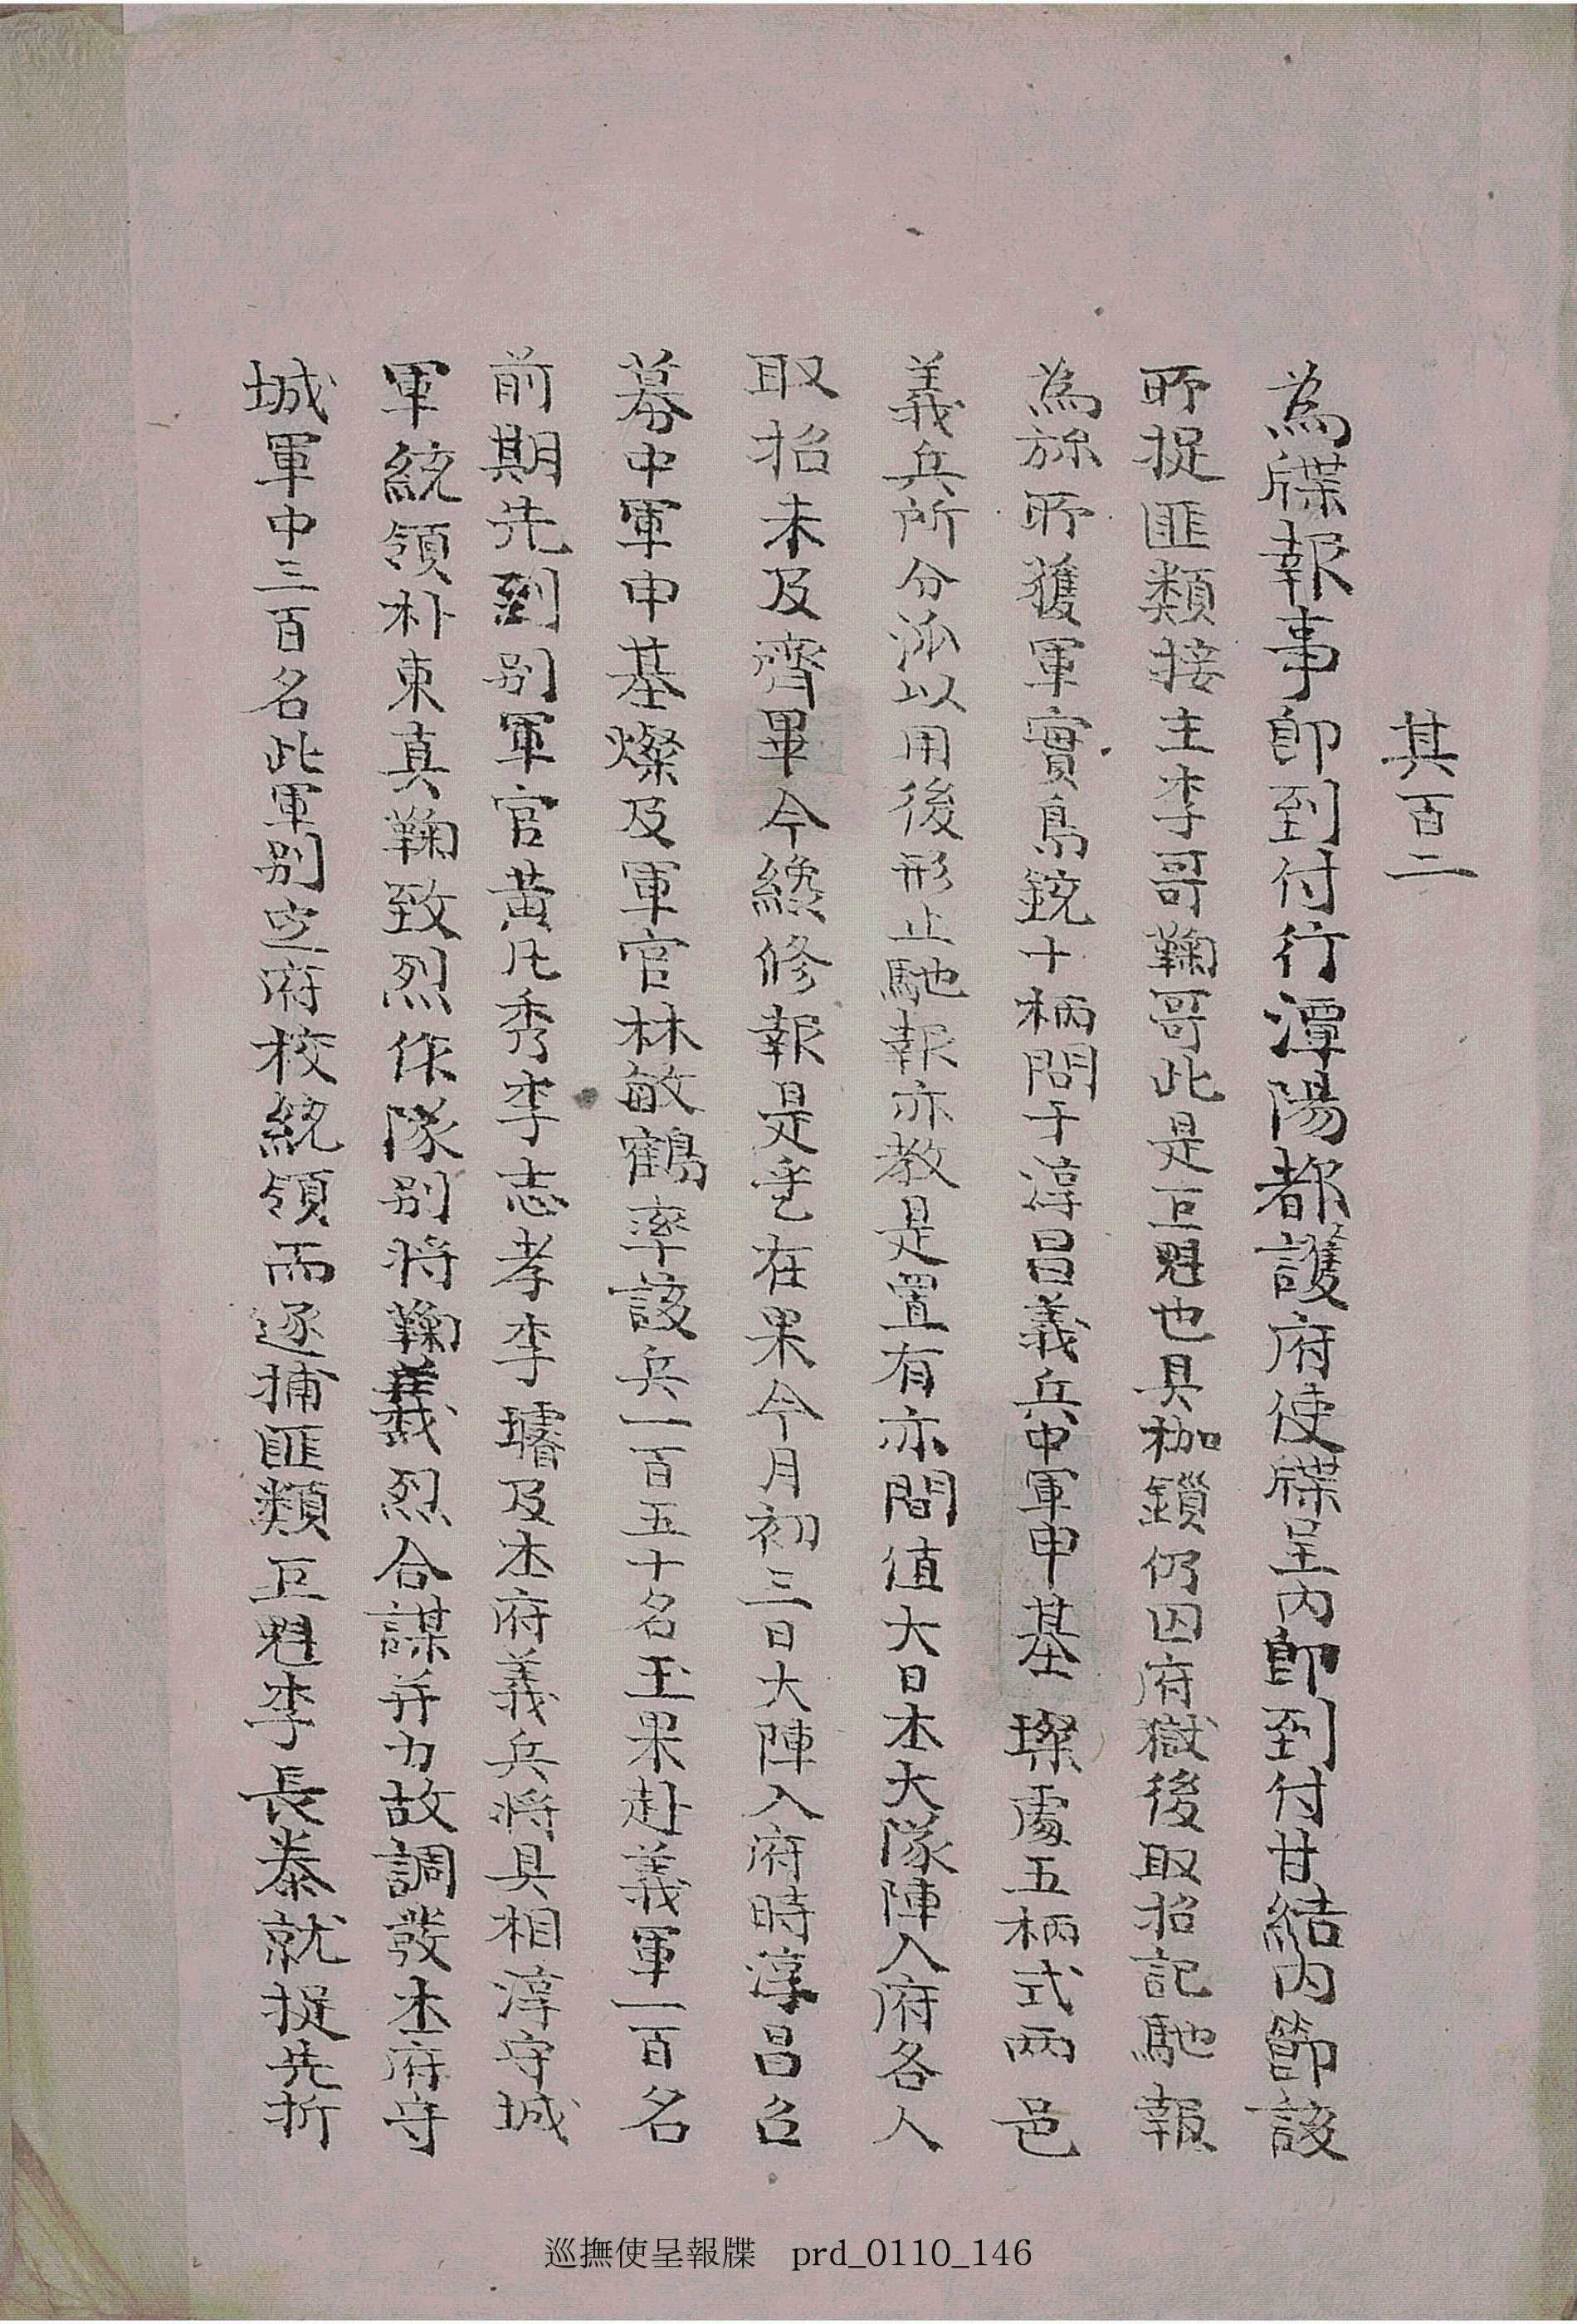 其百二
為牒報事卽到付行潭陽都護府使牒呈內卽到付甘結內節該
所捉匪類接主李哥鞠哥此是巨魁也具枷鎖仍囚府獄後取招記馳報
為旀所獲軍實鳥銃十柄間于淳昌義兵中軍申基璨處五柄式兩邑
義兵所分派以用後形止馳報亦敎是置有亦間値大日本大隊陣入府各人
取招未及齊畢今纔修報是乎乙在果今月初三日大陣入府時淳昌召
募中軍申基燦及軍官林敏鶴率該兵一百五十名玉果赴義軍一百名
前期先到別軍官黃凡秀李志孝李璿及本府義兵將具相淳守城
軍統領朴東眞鞠致烈作隊別將鞠義烈合謀幷力故調發本府守
城軍中三百名此軍別定府校統領而逐捕匪類巨魁李長泰就捉先折
巡撫使呈報牒 prd_0110_146